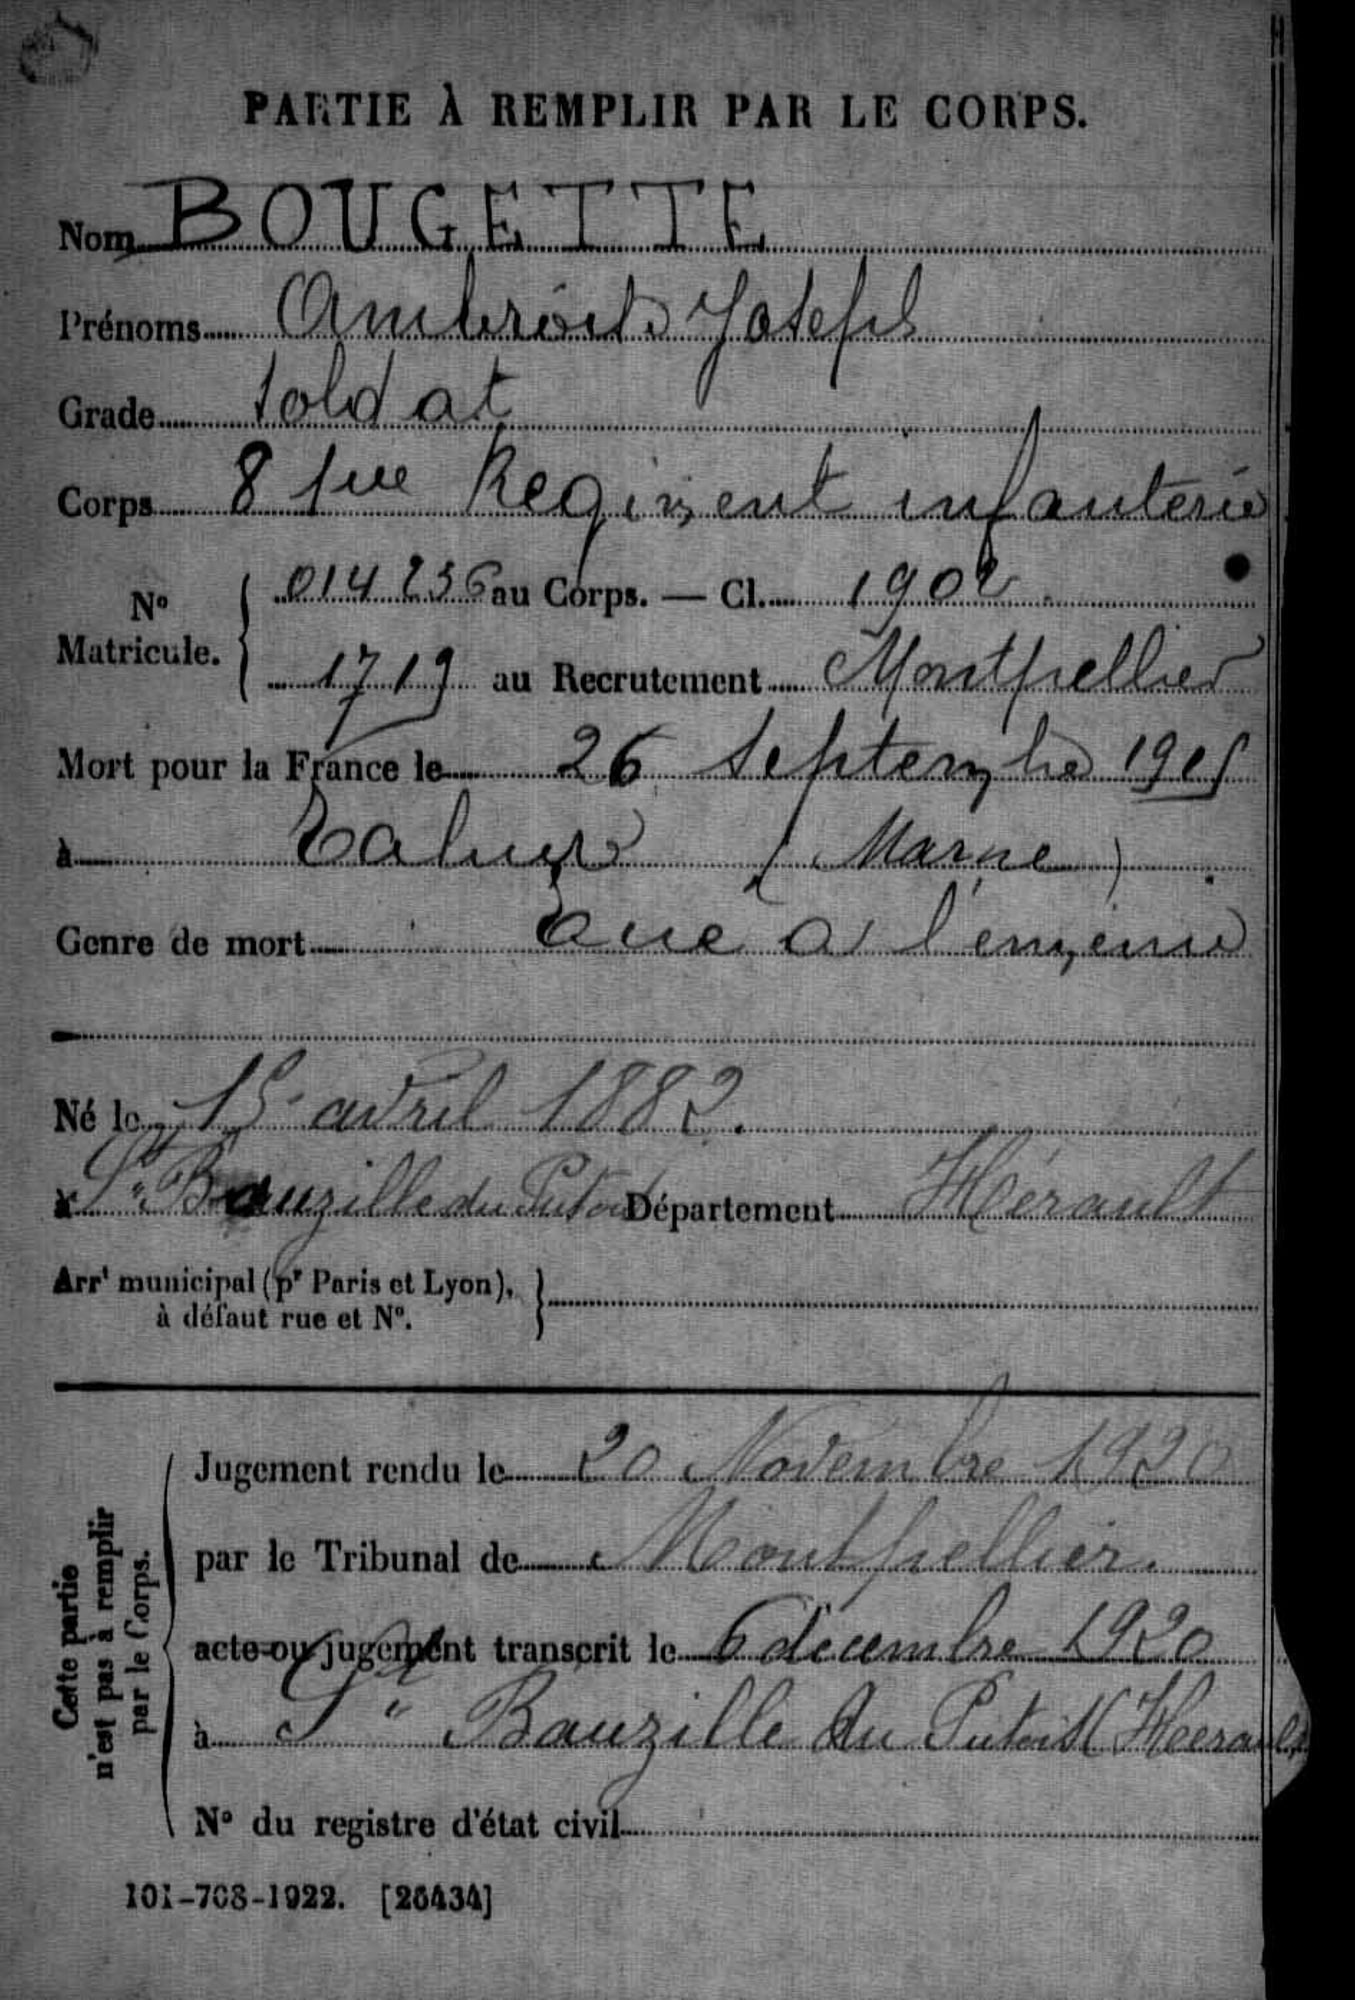 PARTIE À REMPLIR PAR LE CORPS.
Nom BOUGETTE
Prénoms Ambroise Joseph
Grade Soldat
Corps 81me Regiment infanterie
N° Matricule. 014236 au Corps. — Cl. 1902
1719 au Recrutement Montpellier
Mort pour la France le 26 Septembre 1915
à Tahure (Marne)
Genre de mort Tué à l'ennemi
Né le 15 avril 1882.
à St Bauzille du Putois Département Hérault
Arrt municipal (pr Paris et Lyon),
à défaut rue et N°.
Cette partie
n'est pas à remplir
par le Corps.
Jugement rendu le 20 Novembre 1920
par le Tribunal de Montpellier.
acte ou jugement transcrit le 6 décembre 1920
à St Bauzille du Putois (Herault)
N° du registre d'état civil
101-708-1922. [26434]